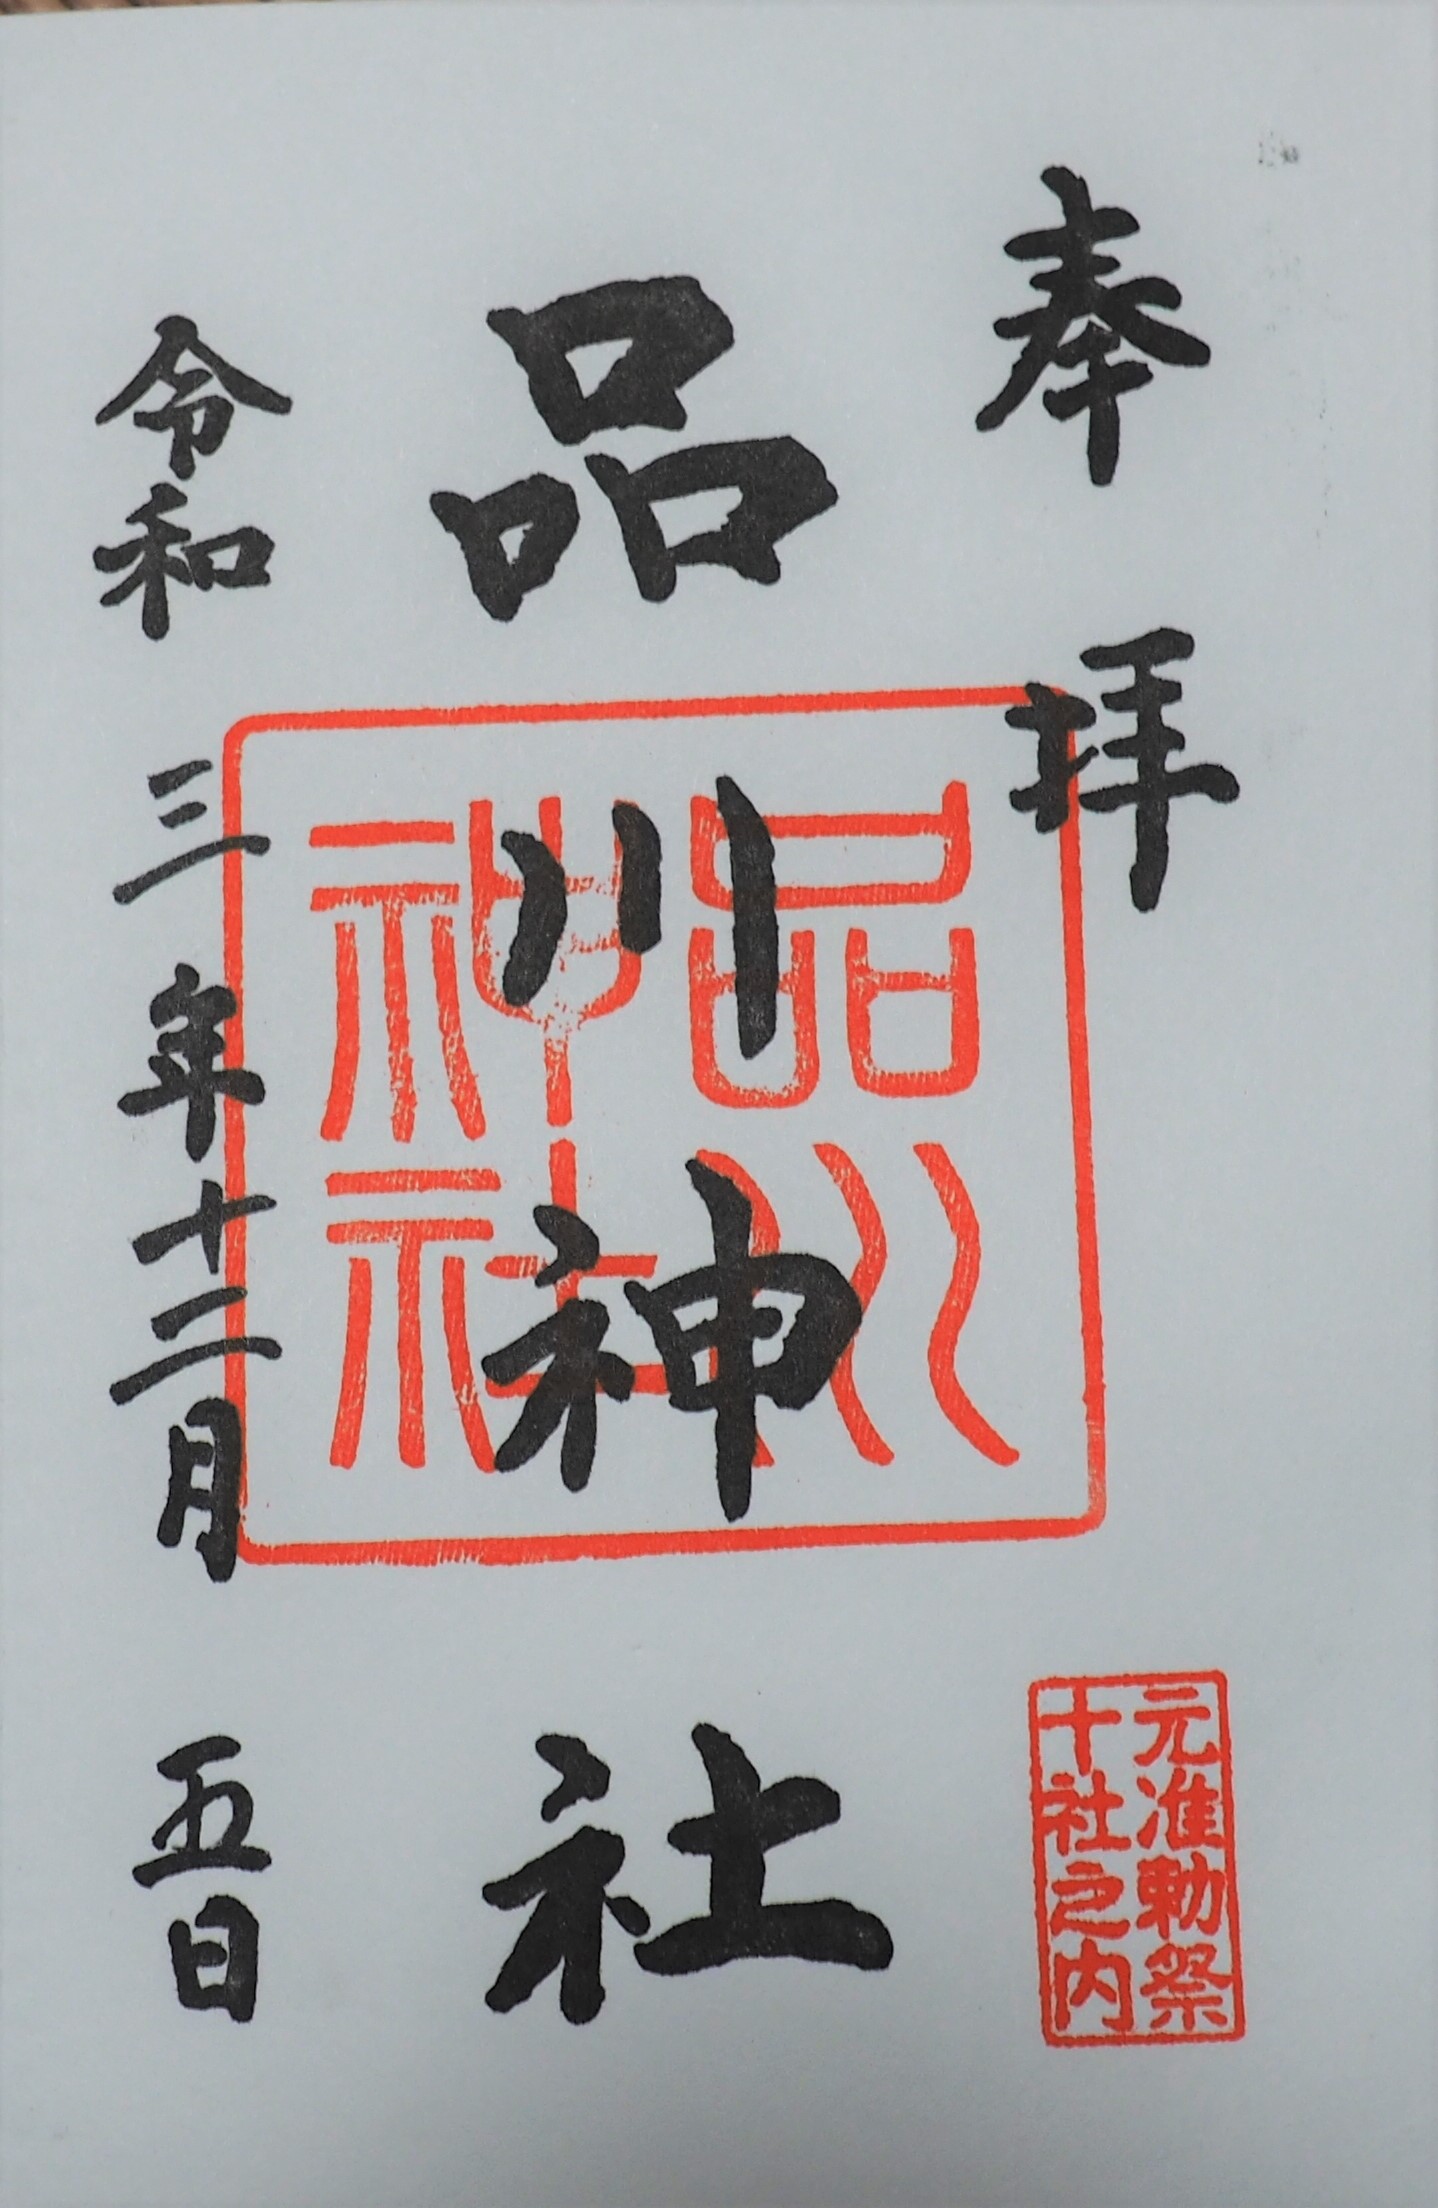 奉拝
元准勅祭
十社之内
品川神社
品川
神社
令和三年十二月五日